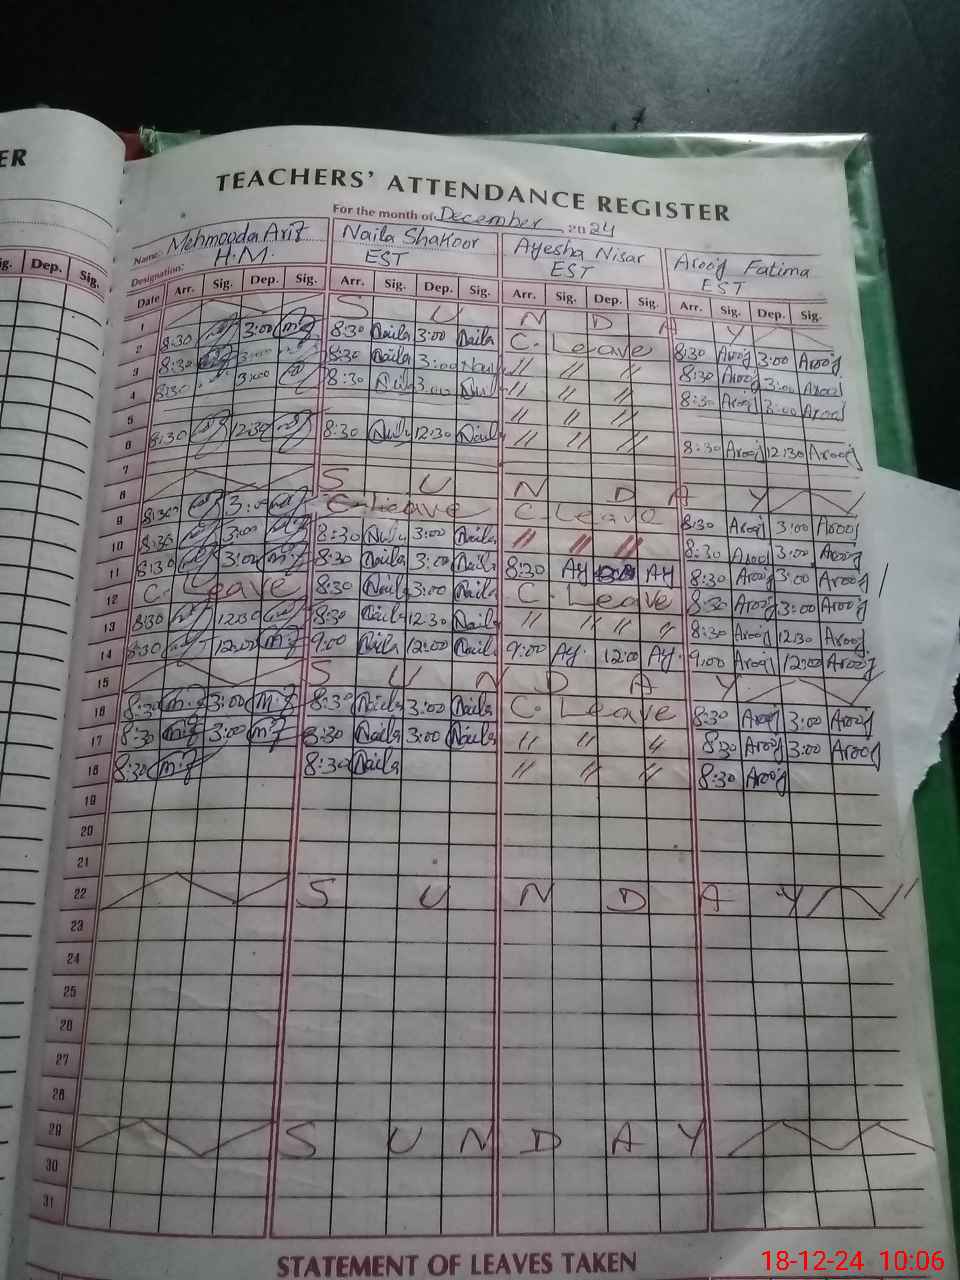 ER
TEACHERS' ATTENDANCE REGISTER
For the month of December 2024
Name: Mehmooda Arif Naila Shakoor Ayesha Nisar Arooj Fatima
Designation: H.M. EST EST EST
ig. Dep. Sig. Date Arr. Sig. Dep. Sig. Arr. Sig. Dep. Sig. Arr. Sig. Dep. Sig. Arr. Sig. Dep. Sig.
1 S U N D A Y
2 8:30 3:00 8:30 Naila 3:00 Naila C. Leave 8:30 Arooj 3:00 Arooj
3 8:30 3:00 8:30 Naila 3:00 Naila // // // 8:30 Arooj 3:00 Arooj
4 8:30 3:00 8:30 3:00 // // // 8:30 Arooj 3:00 Arooj
5 // // //
6 8:30 12:30 8:30 12:30 Naila // // // 8:30 Arooj 12:30 Arooj
7
8 S U N D A Y
9 8:30 3:00 C. Leave C. Leave 8:30 Arooj 3:00 Arooj
10 8:30 3:00 8:30 3:00 Naila // // // 8:30 Arooj 3:00 Arooj
11 8:30 3:00 8:30 Naila 3:00 Naila 8:30 AY AY 8:30 Arooj 3:00 Arooj
12 C. Leave 8:30 Naila 3:00 Naila C. Leave 8:30 Arooj 3:00 Arooj
13 8:30 12:30 8:30 Naila 12:30 Naila // // // // 8:30 Arooj 12:30 Arooj
14 8:30 12:00 9:00 Naila 12:00 Naila 9:00 AY. 12:00 AY. 9:00 Arooj 12:00 Arooj
15 S U N D A Y
16 8:30 3:00 8:30 Naila 3:00 Naila C. Leave 8:30 Arooj 3:00 Arooj
17 8:30 3:00 8:30 Naila 3:00 Naila // // // 8:30 Arooj 3:00 Arooj
18 8:30 8:30 Naila // // // 8:30 Arooj
19
20
21
22 S U N D A Y
23
24
25
26
27
28
29 S U N D A Y
30
31
STATEMENT OF LEAVES TAKEN
18-12-24 10:06